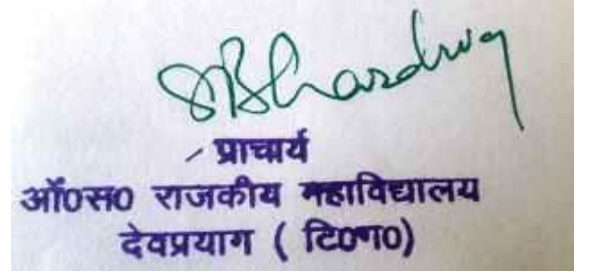 SBhardwaj
प्राचार्य
ओं0स0 राजकीय महाविद्यालय
देवप्रयाग ( टि0ग0)